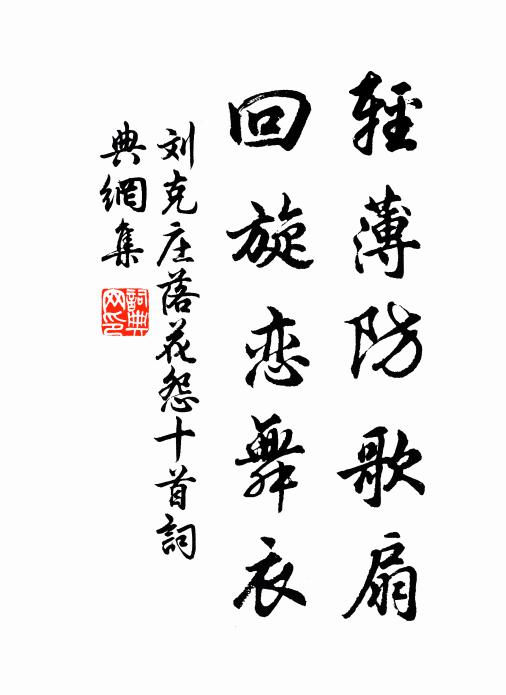 輕薄防歌扇
回旋恋舞衣
刘克庄落花怨十首詞
典網集
詞典網印